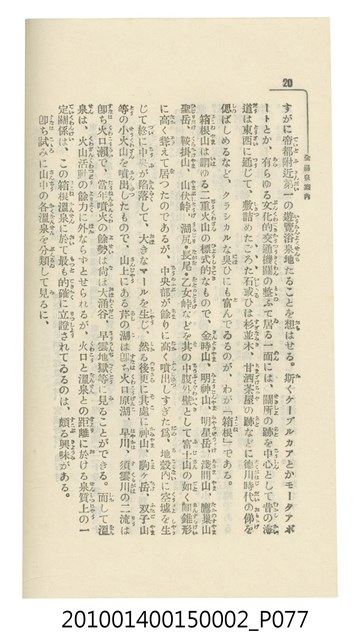 20
全國温泉案內
すがに帝都附近第一の遊覽浴泉地たることを想はせる。斯くケーブルカアとかモータアボ
ートとか、有らゆる文化的交通機關の整ふて居る一面には、關所の跡を中心として昔の海
道は東西に通じて、敷詰めたころた石或ひは杉並木、甘酒茶屋の跡などに德川時代の俤を
偲ばしめるなど、クラシカルな臭ひにも富んでゐるのが、わが「箱根」である。
箱根山は謂ゆる二重火山の標式的なもので、金時山、明神山、明星岳、淺間山、鷹巢山
聖岳、鞍掛山、山伏峠、湖尻・長尾・乙女峠などを其の中腹外壁として富士山の如く圓錐形
に高く聳えて居つたのであるが、中央部が餘りに高く噴出しすぎた爲、地殼內に空墟を生
じて終に中央が陷落して、大きなマールを生じ、然る後更に其處に神山、駒ヶ岳、双子山
等の小火山を噴出したもので、山上にある芦の湖は卽ち火口原湖、早川、須雲川の二流は
卽ち火口瀨で、當年噴火の餘勢は尙ほ大涌谷、早雲地獄等に見ることができる。而して溫
泉は、火山活動の餘力に外ならずとせられるが、火口と溫泉との距離に於ける泉質上の一
定關係は、この箱根溫泉に於て最も的確に立證されてゐるのは、頗る興味がある。
卽ち試みに山中の各溫泉を分類して見るに、
201001400150002_P077